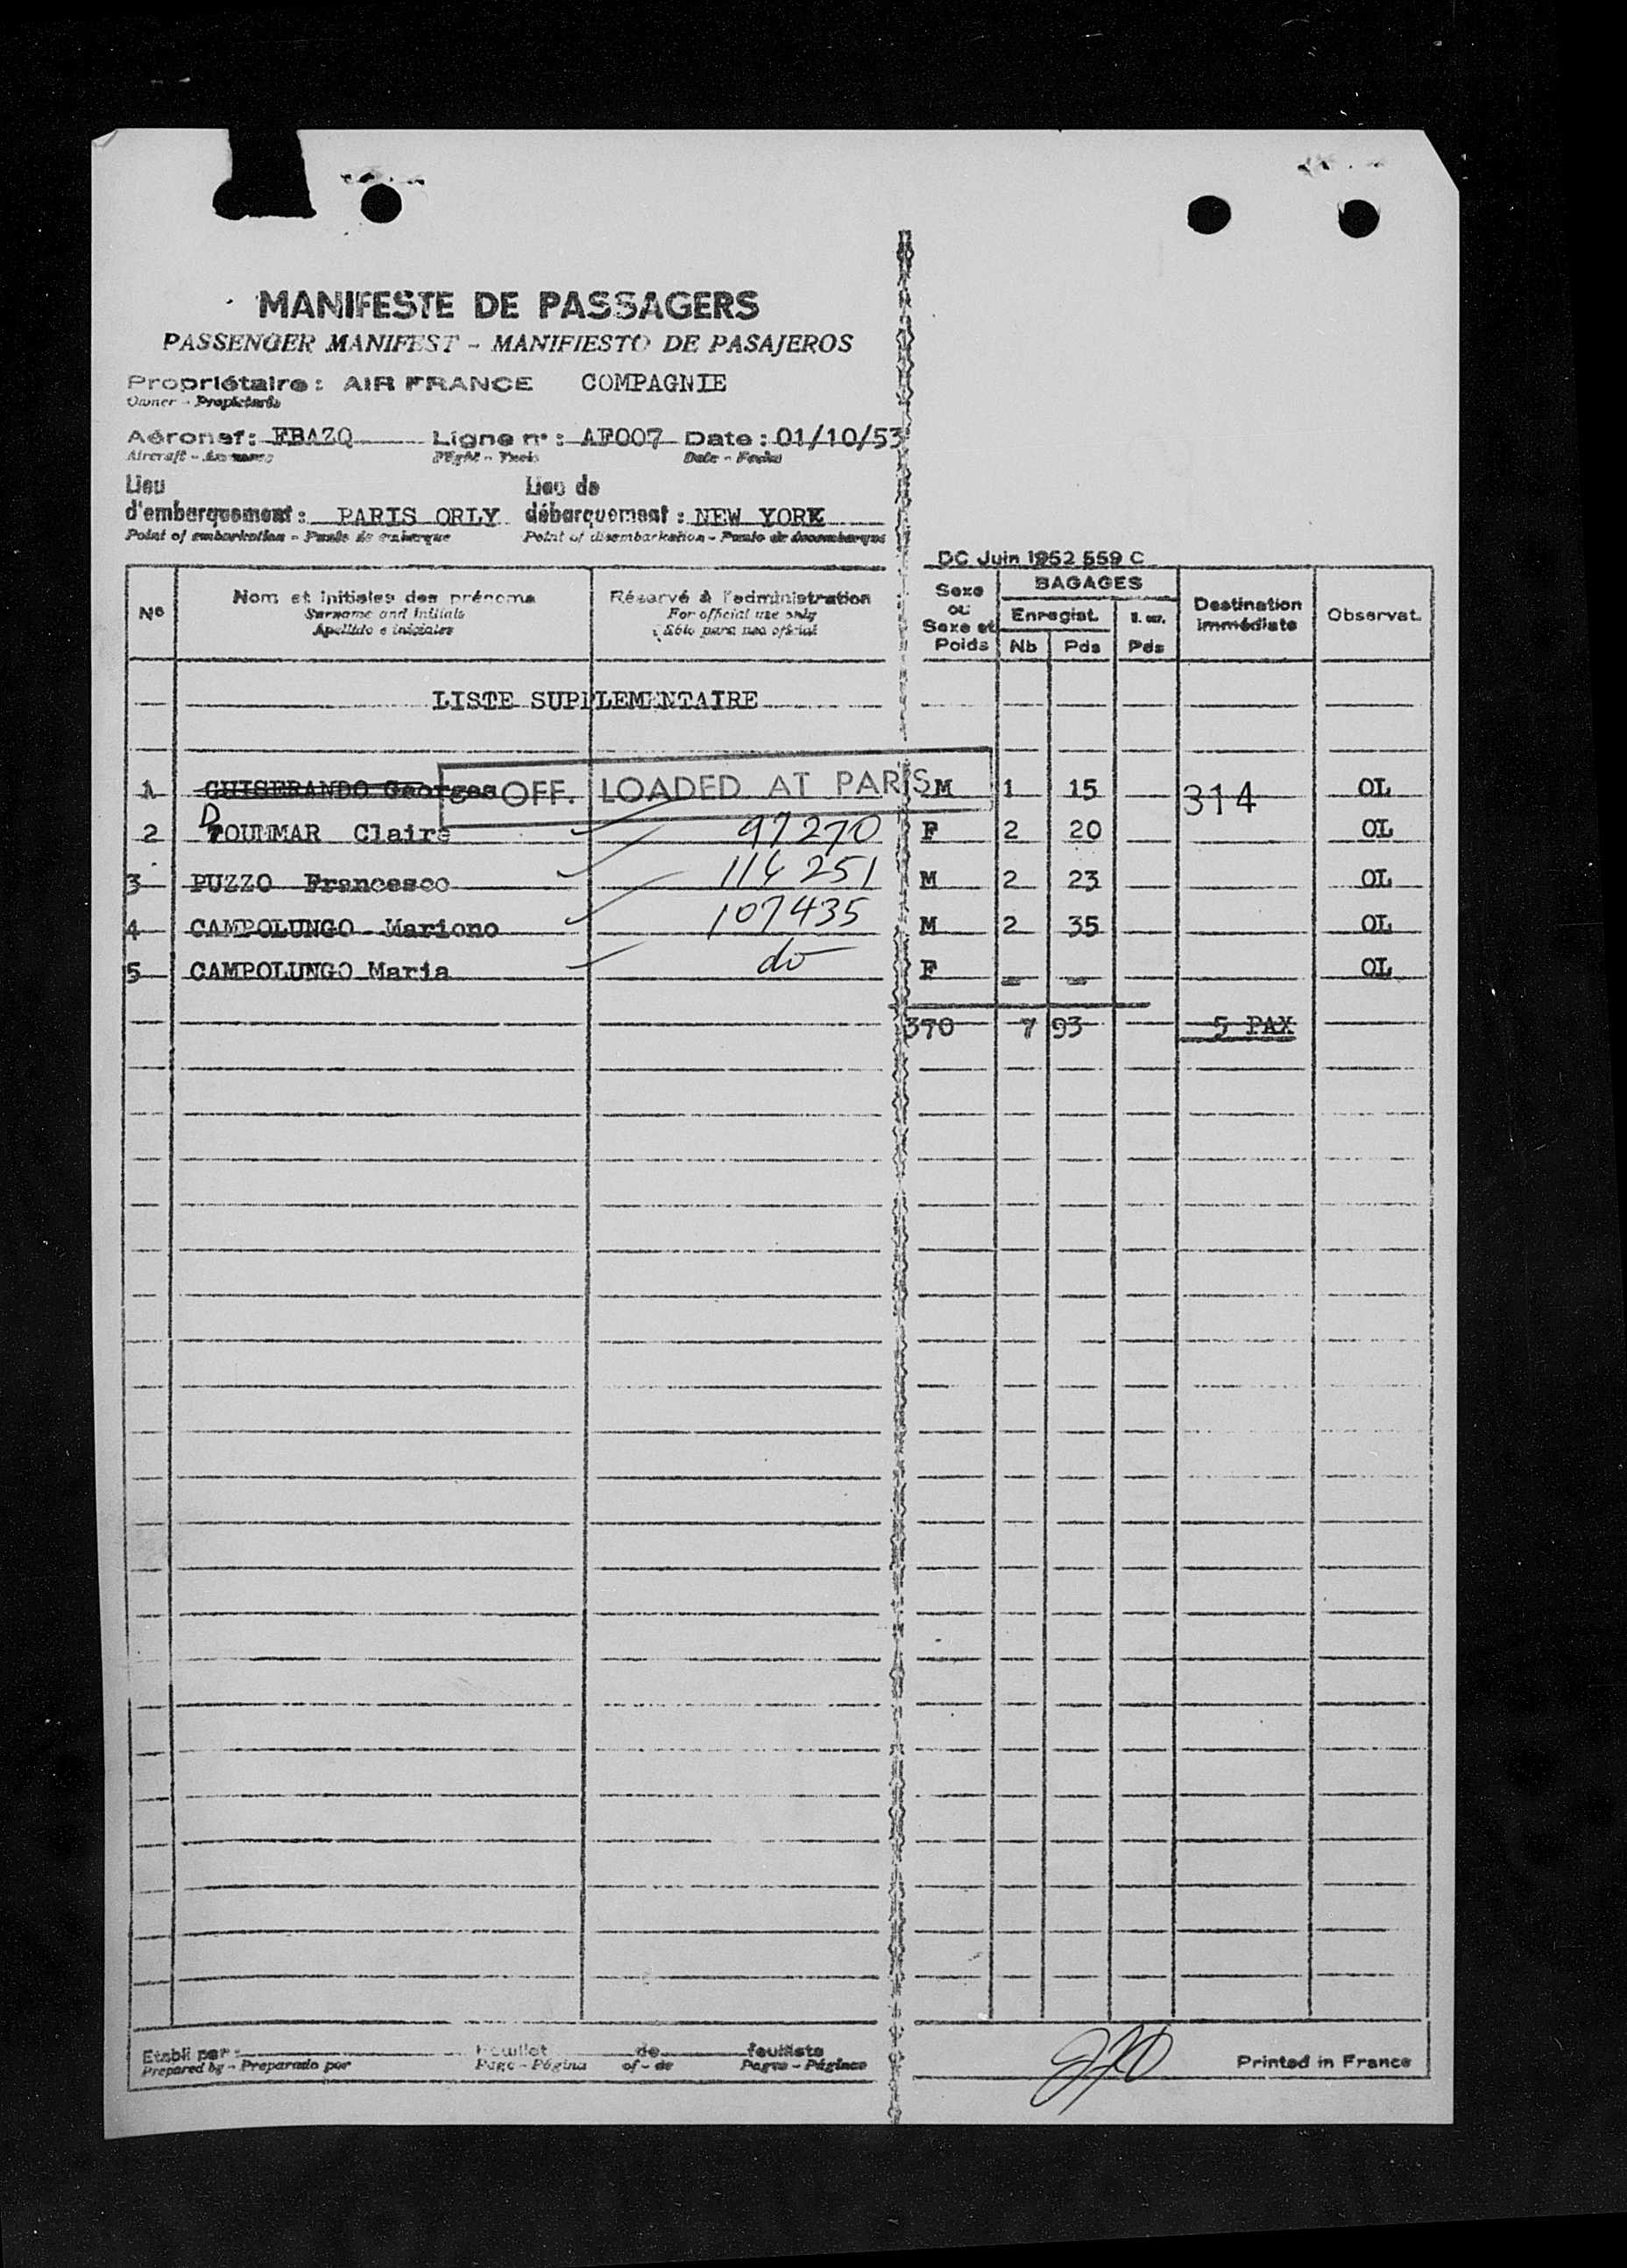 MANIFESTE DE PASSAGERS
PASSENGER MANIFEST - MANIFIESTO DE PASAJEROS
Propriétaire : AIR FRANCE COMPAGNIE
Owner - Propietario
Aéronef : FBAZQ Ligne n° : AF007 Date : 01/10/53
Aircraft - Flight - Date - Fecha
Lieu d'embarquement : PARIS ORLY Lieu de débarquement : NEW YORK
Point of embarkation - Punto de embarque Point of disembarkation - Punto de desembarque
DC Juin 1952 559 C
N° Nom et initiales des prénoms Réservé à l'administration Sexe ou Sexe et Poids BAGAGES Destination immédiate Observat.
Surname and initials For official use only Enregist.
Apellido e iniciales Sólo para uso oficial Nb Pds Pds
LISTE SUPPLEMENTAIRE
OFF. LOADED AT PARIS
1 GUISERANDO Georges M 1 15 314 OL
2 DOUMMAR Claire 97270 F 2 20 OL
3 PUZZO Francesco 114251 M 2 23 OL
4 CAMPOLUNGO Mariono 107435 M 2 35 OL
5 CAMPOLUNGO Maria do F - - OL
370 7 93 5 PAX
Etabli par : Feuillet de feuillets
Prepared by - Preparado por Page - Página of - de Pages - Páginas
Printed in France